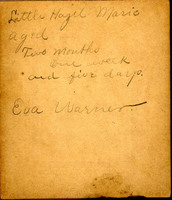 Little Hazel Marie
aged
Two months
one week
and five days.
Eva Warner.